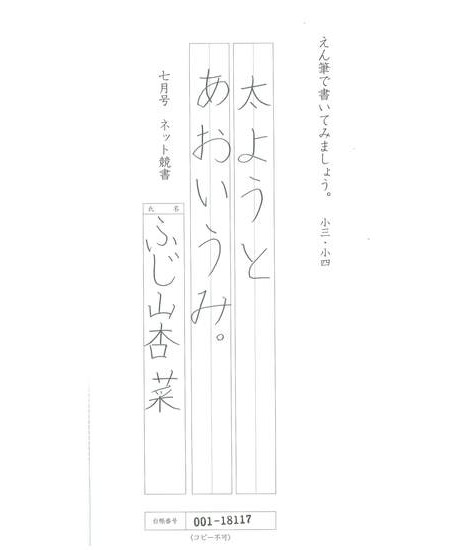 えん筆で書いてみましょう。 小三・小四
太ようと
あおいうみ。
七月号 ネット競書
氏名
ふじ山杏菜
台帳番号 001-18117
(コピー不可)